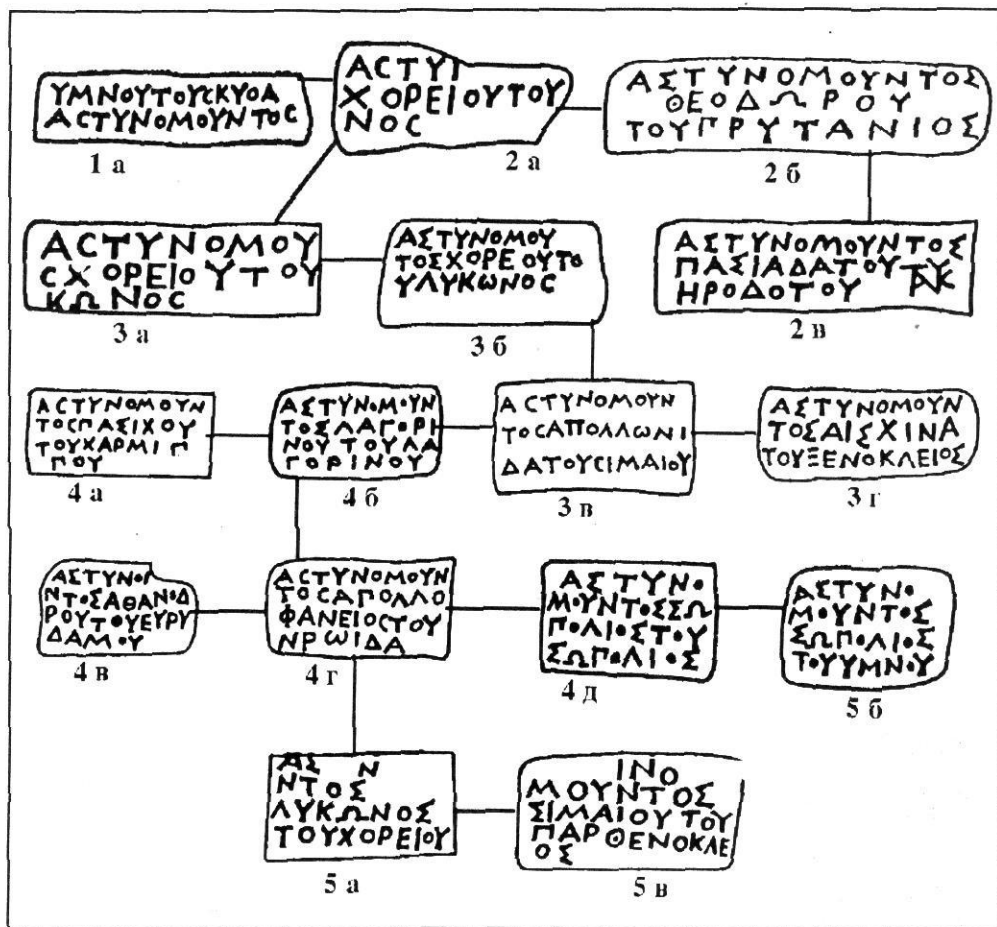 ΥΜΝΟΥΤΟΥСΚΥΘΑ
ΑСΤΥΝΟΜΟΥΝΤΟС
1 а
ΑСΤΥΙ
ΧΟΡΕΙΟΥΤΟΥ
ΝΟС
2 а
ΑΣΤΥΝΟΜΟΥΝΤΟΣ
ΘΕΟΔΩΡΟΥ
ΤΟΥΠΡΥΤΑΝΙΟΣ
2 б
ΑСΤΥΝΟΜΟΥ
СΧΟΡΕΙΟΥΤΟΥ
ΚΩΝΟС
3 а
ΑΣΤΥΝΟΜΟΥ
ΤΟΣΧΟΡΕΟΥΤΟ
ΥΛΥΚΩΝΟС
3 б
ΑΣΤΥΝΟΜΟΥΝΤΟΣ
ΠΑΣΙΑΔΑΤΟΥ
ΗΡΟΔΟΤΟΥ
2 в
ΑСΤΥΝΟΜΟΥΝ
ΤΟСΠΑΣΙΧΟΥ
ΤΟΥΧΑΡΜΙΠ
ΠΟΥ
4 а
ΑΣΤΥΝΟΜΟΥΝ
ΤΟΣΛΑΓΟΡΙ
ΝΟΥΤΟΥΛΑ
ΓΟΡΙΝΟΥ
4 б
ΑСΤΥΝΟΜΟΥΝ
ΤΟСΑΠΟΛΛΩΝΙ
ΔΑΤΟΥСΙΜΑΙΟΥ
3 в
ΑΣΤΥΝΟΜΟΥΝ
ΤΟΣΑΙΣΧΙΝΑ
ΤΟΥΞΕΝΟΚΛΕΙΟΣ
3 г
ΑΣΤΥΝΟΙ
ΝΤΟΣΑΘΑΝΟΔ
ΡΟΥΤΟΥΕΥΡΥ
ΔΑΜΟΥ
4 в
ΑСΤΥΝΟΜΟΥΝ
ΤΟСΑΠΟΛΛΟ
ΦΑΝΕΙΟСΤΟΥ
ΝΡΩΙΔΑ
4 г
ΑΣΤΥΝΟ
ΜΟΥΝΤΟΣΣΩ
ΠΟΛΙΟΣΤΟΥ
ΣΩΠΟΛΙΟΣ
4 д
ΑΣΤΥΝΟ
ΜΟΥΝΤΟΣ
ΣΩΠΟΛΙΟΣ
ΤΟΥΥΜΝΟΥ
5 б
ΑΣ Ν
ΝΤΟΣ
ΛΥΚΩΝΟΣ
ΤΟΥΧΟΡΕΙΟΥ
5 а
ΙΝΟ
ΜΟΥΝΤΟΣ
ΣΙΜΑΙΟΥΤΟΥ
ΠΑΡΘΕΝΟΚΛΕ
ΟΣ
5 в